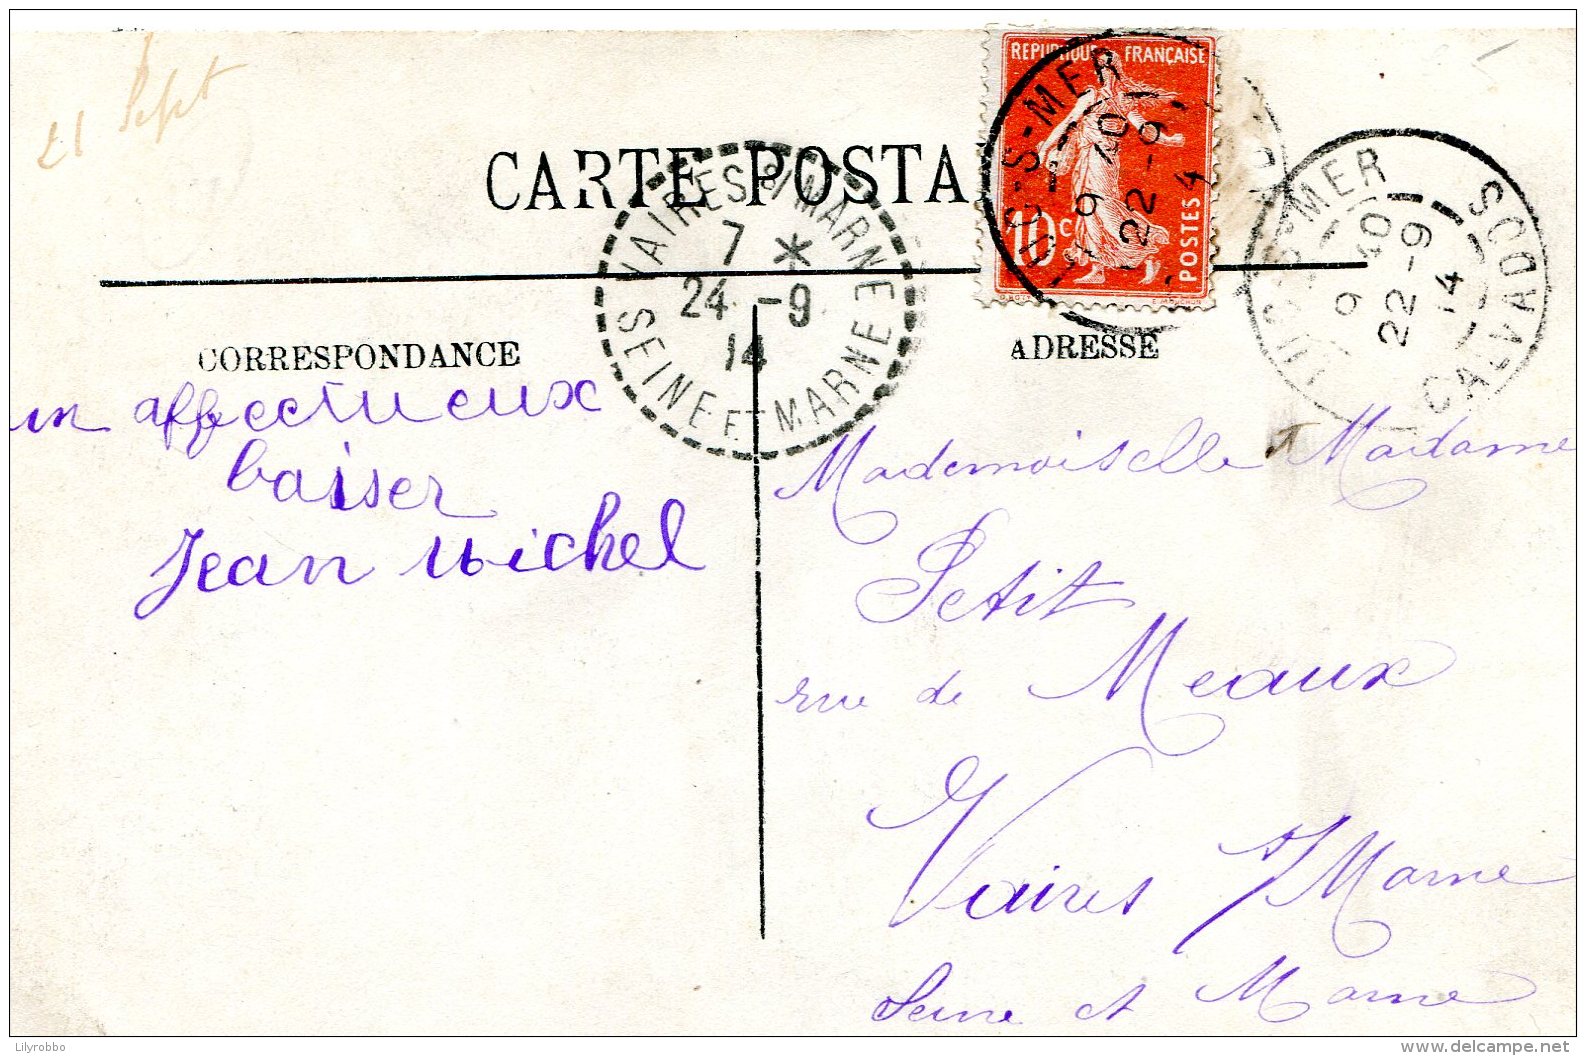 21 Sept
CARTE POSTA
REPUBLIQUE FRANÇAISE
10c
POSTES
LUC-S-MER
9 40
22 -9
14
LUC-S-MER
9 40
22 -9
14
CALVADOS
VAIRES S/ MARNE
7 *
24 -9
14
SEINE ET MARNE
CORRESPONDANCE
un affectueux
baiser
Jean Michel
ADRESSE
Mademoiselle Madame
Petit
rue de Meaux
Vaires s/Marne
Seine et Marne
Lilyrobbo
delcampe.net